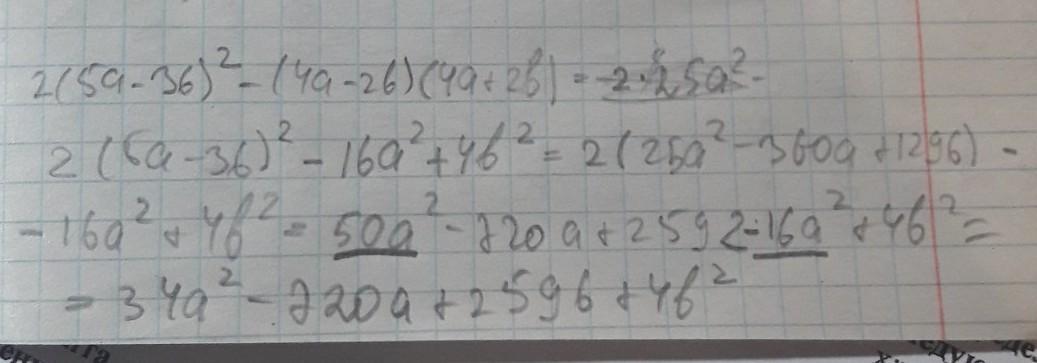 2(5a-36)²-(4a-2b)(4a+2b)=-2·25a²-
2(5a-36)²-16a²+4b²=2(25a²-360a+1296)-
-16a²+4b²=50a²-720a+2592-16a²+4b²=
=34a²-720a+2596+4b²